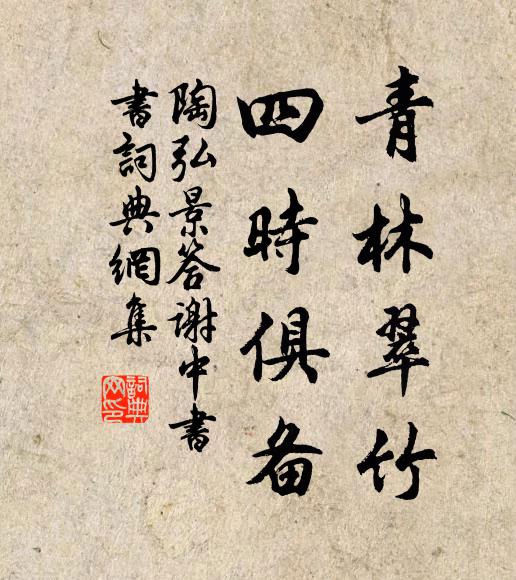 青林翠竹
四時俱备
陶弘景答谢中書
書詞典網集
詞典
网印